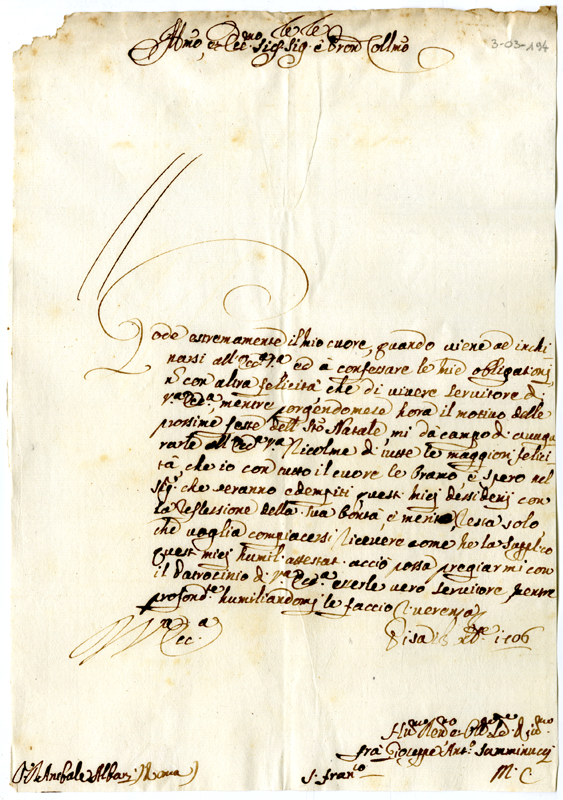 Illmo, et Ecc.mo Sig. Sig. e Pron Collmo
3-03-194
Gode estremamente il mio cuore, quando viene ad inchi
narsi all'Ecc.a V.a ed à confessare le mie obligationj,
nō con altra felicità che di vivere servitore di
V.a Ecc.a, mentre porgendomese hora il motivo delle
prossime feste dell S.to Natale mi dà campo d' augu
rarle all'Ecc.a V.a Ricolme di tutte le maggiori felici
tà che io con tutto il cuore le bramo e spero nel
Sig.r che seranno adempiti quest. miej dessiderij con
la reflessione della sua bontà e merito Resta solo
che voglia compiacersi ricevere come he la supplico
quest. miej humil. attestat. acciò possa pregiarmi con
il Patrocinio di V.a Ecc.a esserle vero servitore, mentre
profond.te humiliandomj le faccio riverenza
V.a Ecc.a
Pisa xbre 1706
Hu.mo
frà Gioseppe Ant.o Samminucej
Anibale Albani (Roma)
S. Fran.co
M. C.